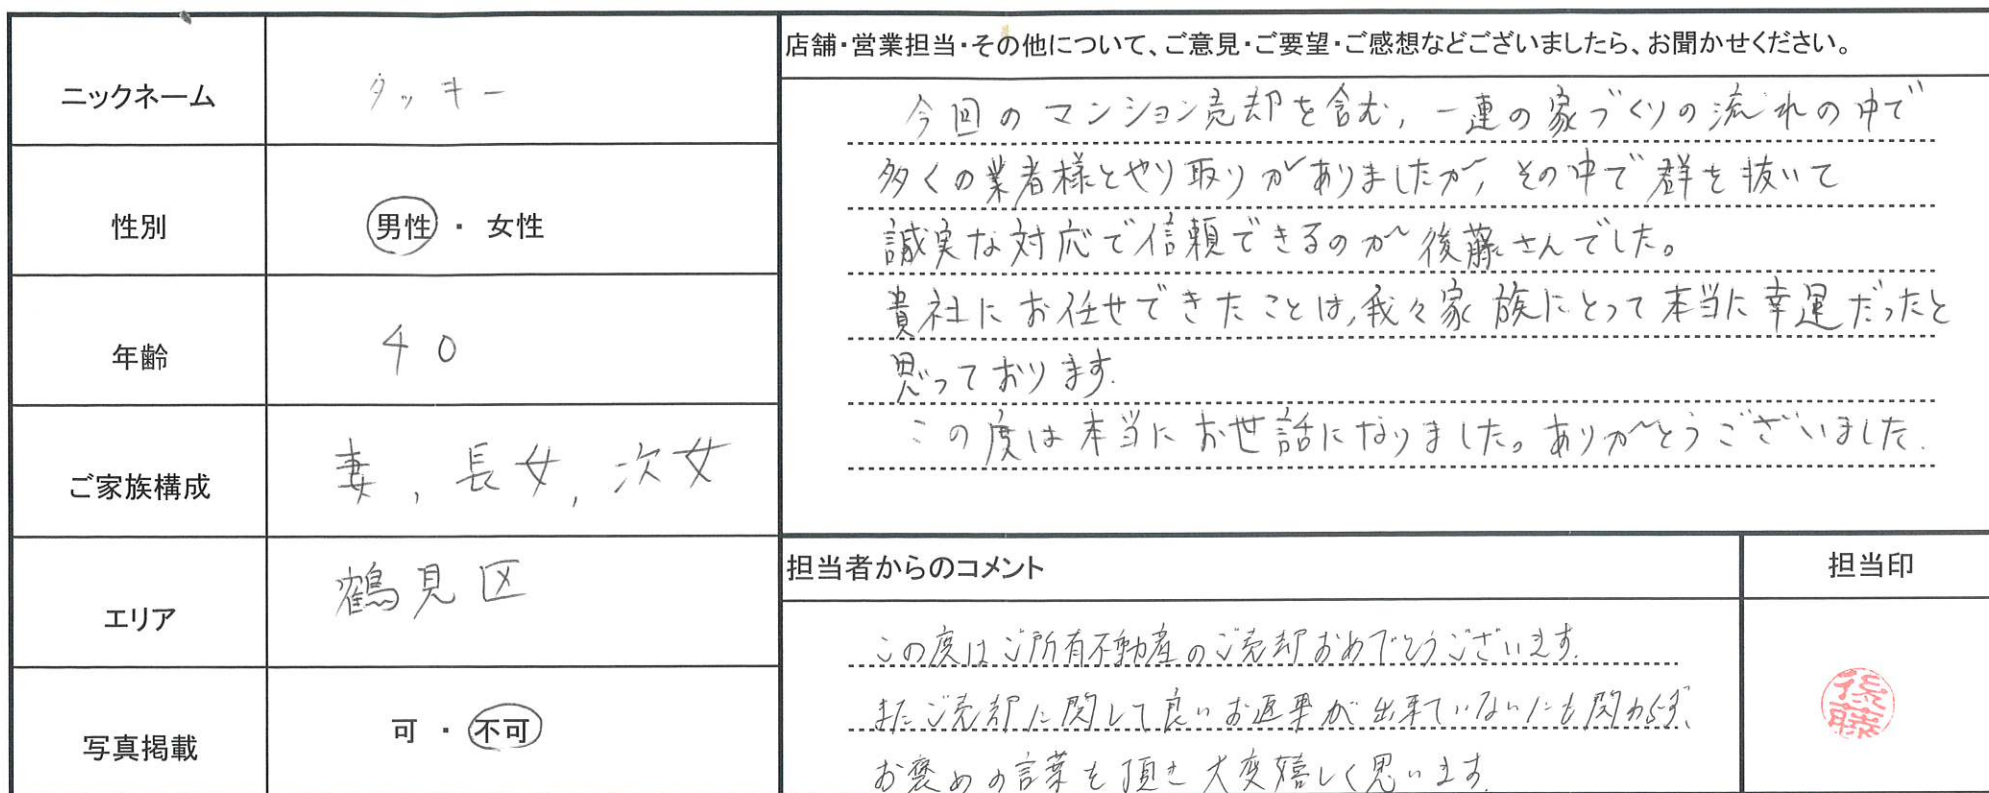 ニックネーム
タッキー
性別
男性 ・ 女性
年齢
40
ご家族構成
妻, 長女, 次女
エリア
鶴見区
写真掲載
可 ・ 不可
店舗・営業担当・その他について、ご意見・ご要望・ご感想などございましたら、お聞かせください。
今回のマンション売却を含む, 一連の家づくりの流れの中で
多くの業者様とやり取りがありましたが, その中で群を抜いて
誠実な対応で信頼できるのが後藤さんでした。
貴社にお任せできたことは, 我々家族にとって本当に幸運だったと
思っております.
この度は本当にお世話になりました。ありがとうございました.
担当者からのコメント
この度はご所有不動産のご売却おめでとうございます.
またご売却に関して良いお返事が出来ていないにも関わらず、
お褒めの言葉を頂き大変嬉しく思います.
担当印
後藤